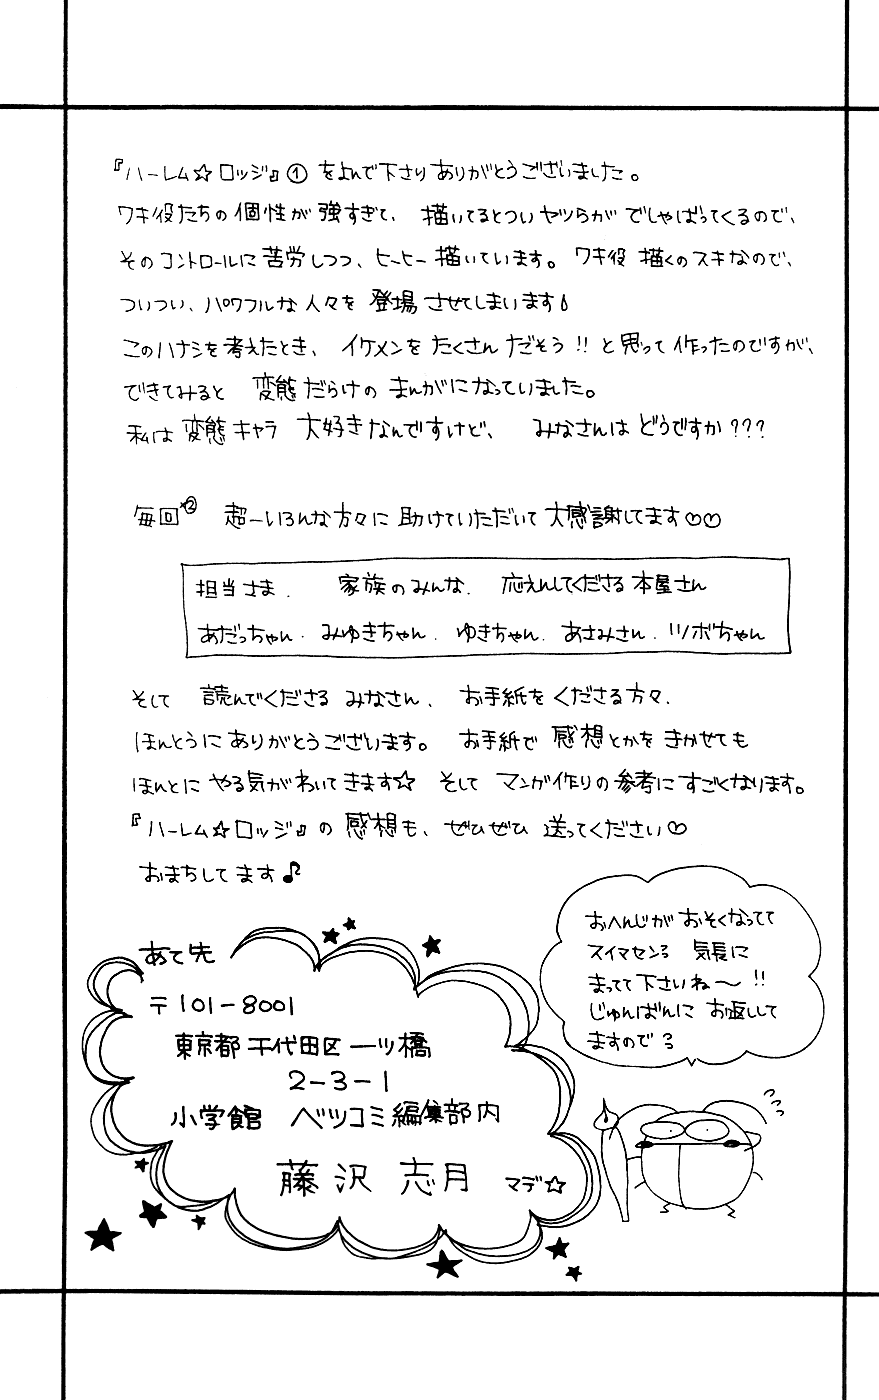 『ハーレム☆ロッジ』① をよんで下さりありがとうございました。
ワキ役たちの個性が強すぎて、描いてるとついヤツらがでしゃばってくるので、
そのコントロールに苦労しつつ、ヒーヒー描いています。ワキ役描くのスキなので、
ついつい、パワフルな人々を登場させてしまいます
このハナシを考えたとき、イケメンをたくさんだそう!!と思って作ったのですが、
できてみると変態だらけのまんがになっていました。
私は変態キャラ大好きなんですけど、みなさんはどうですか???
毎回×2 超ーいろんな方々に助けていただいて大感謝してます♡♡
担当さま. 家族のみんな. 応えんしてくださる本屋さん
あだっちゃん. みゆきちゃん. ゆきちゃん. あさみさん. ツボちゃん
そして読んでくださるみなさん、お手紙をくださる方々、
ほんとうにありがとうございます。お手紙で感想とかをきかせても
ほんとにやる気がわいてきます☆ そしてマンガ作りの参考にすごくなります。
『ハーレム☆ロッジ』の感想も、ぜひぜひ送ってください♡
おまちしてます♪
おへんじがおそくなってて
スイマセンろ 気長に
まってて下さいね〜!!
じゅんばんにお返しして
ますのでろ
あて先
〒101-8001
東京都千代田区一ツ橋
2-3-1
小学館 ベツコミ編集部内
藤沢志月 マデ☆